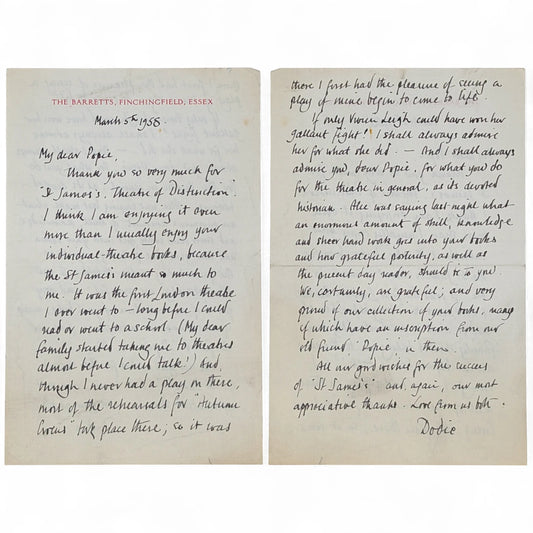 THE BARRETTS, FINCHINGFIELD, ESSEX
March 5th 1958
My dear Popie,
Thank you so very much for
"St James's. Theatre of Distinction".
I think I am enjoying it even
more than I usually enjoy your
individual-theatre books, because
the St James's meant so much to
me. It was the first London theatre
I ever went to – long before I could
read or went to a school. (My dear
family started taking me to theatres
almost before I could talk!) And,
though I never had a play on there,
most of the rehearsals for "Autumn
Crocus" took place there; so it was
there I first had the pleasure of seeing a
play of mine begin to come to life.
If only Vivien Leigh could have won her
gallant fight! I shall always admire
her for what she did. – And I shall always
admire you, dear Popie, for what you do
for the theatre in general, as its devoted
historian. Alec was saying last night what
an enormous amount of skill, knowledge
and sheer hard work goes into your books
and how grateful posterity, as well as
the present day reader, should be to you.
We, certainly, are grateful; and very
proud of our collection of your books, many
of which have an inscription from our
old friend "Popie" in them.
All our good wishes for the success
of "St James's" and, again, our most
appreciative thanks. Love from us both.
Dodie